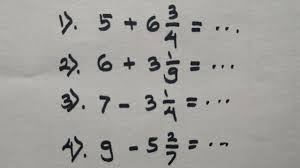 1). 5 + 6 3/4 = ...
2). 6 + 3 1/9 = ...
3). 7 - 3 1/4 = ...
4). 9 - 5 2/7 = ...